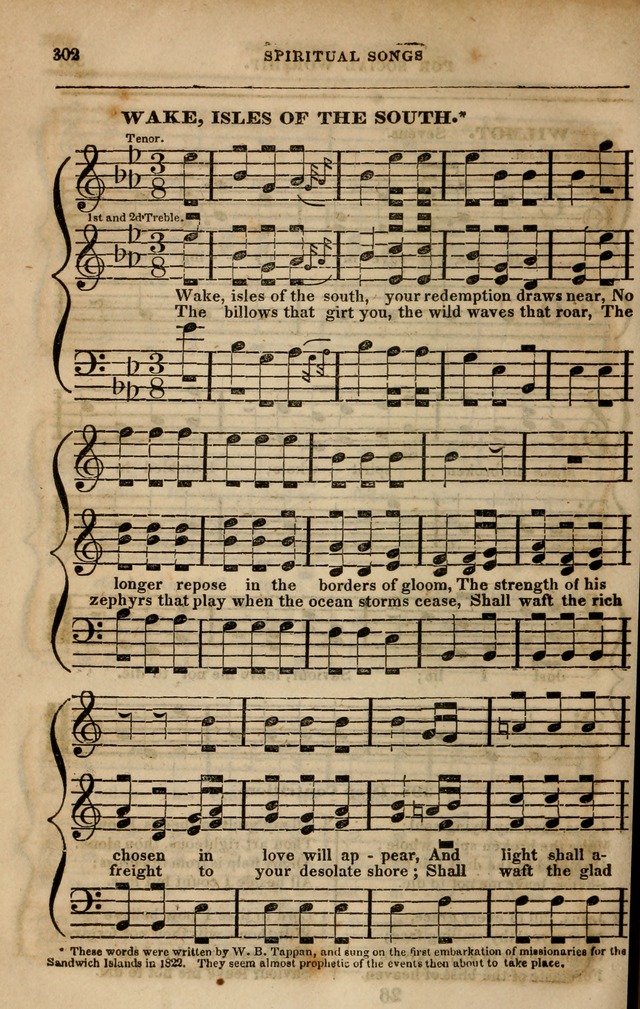 302
SPIRITUAL SONGS
WAKE, ISLES OF THE SOUTH.*
Tenor.
3
8
1st and 2d Treble.
3
8
Wake, isles of the south, your redemption draws near, No
The billows that girt you, the wild waves that roar, The
3
8
longer repose in the borders of gloom, The strength of his
zephyrs that play when the ocean storms cease, Shall waft the rich
chosen in love will ap - pear, And light shall a-
freight to your desolate shore ; Shall waft the glad
* These words were written by W. B. Tappan, and sung on the first embarkation of missionaries for the
Sandwich Islands in 1822. They seem almost prophetic of the events then about to take place.